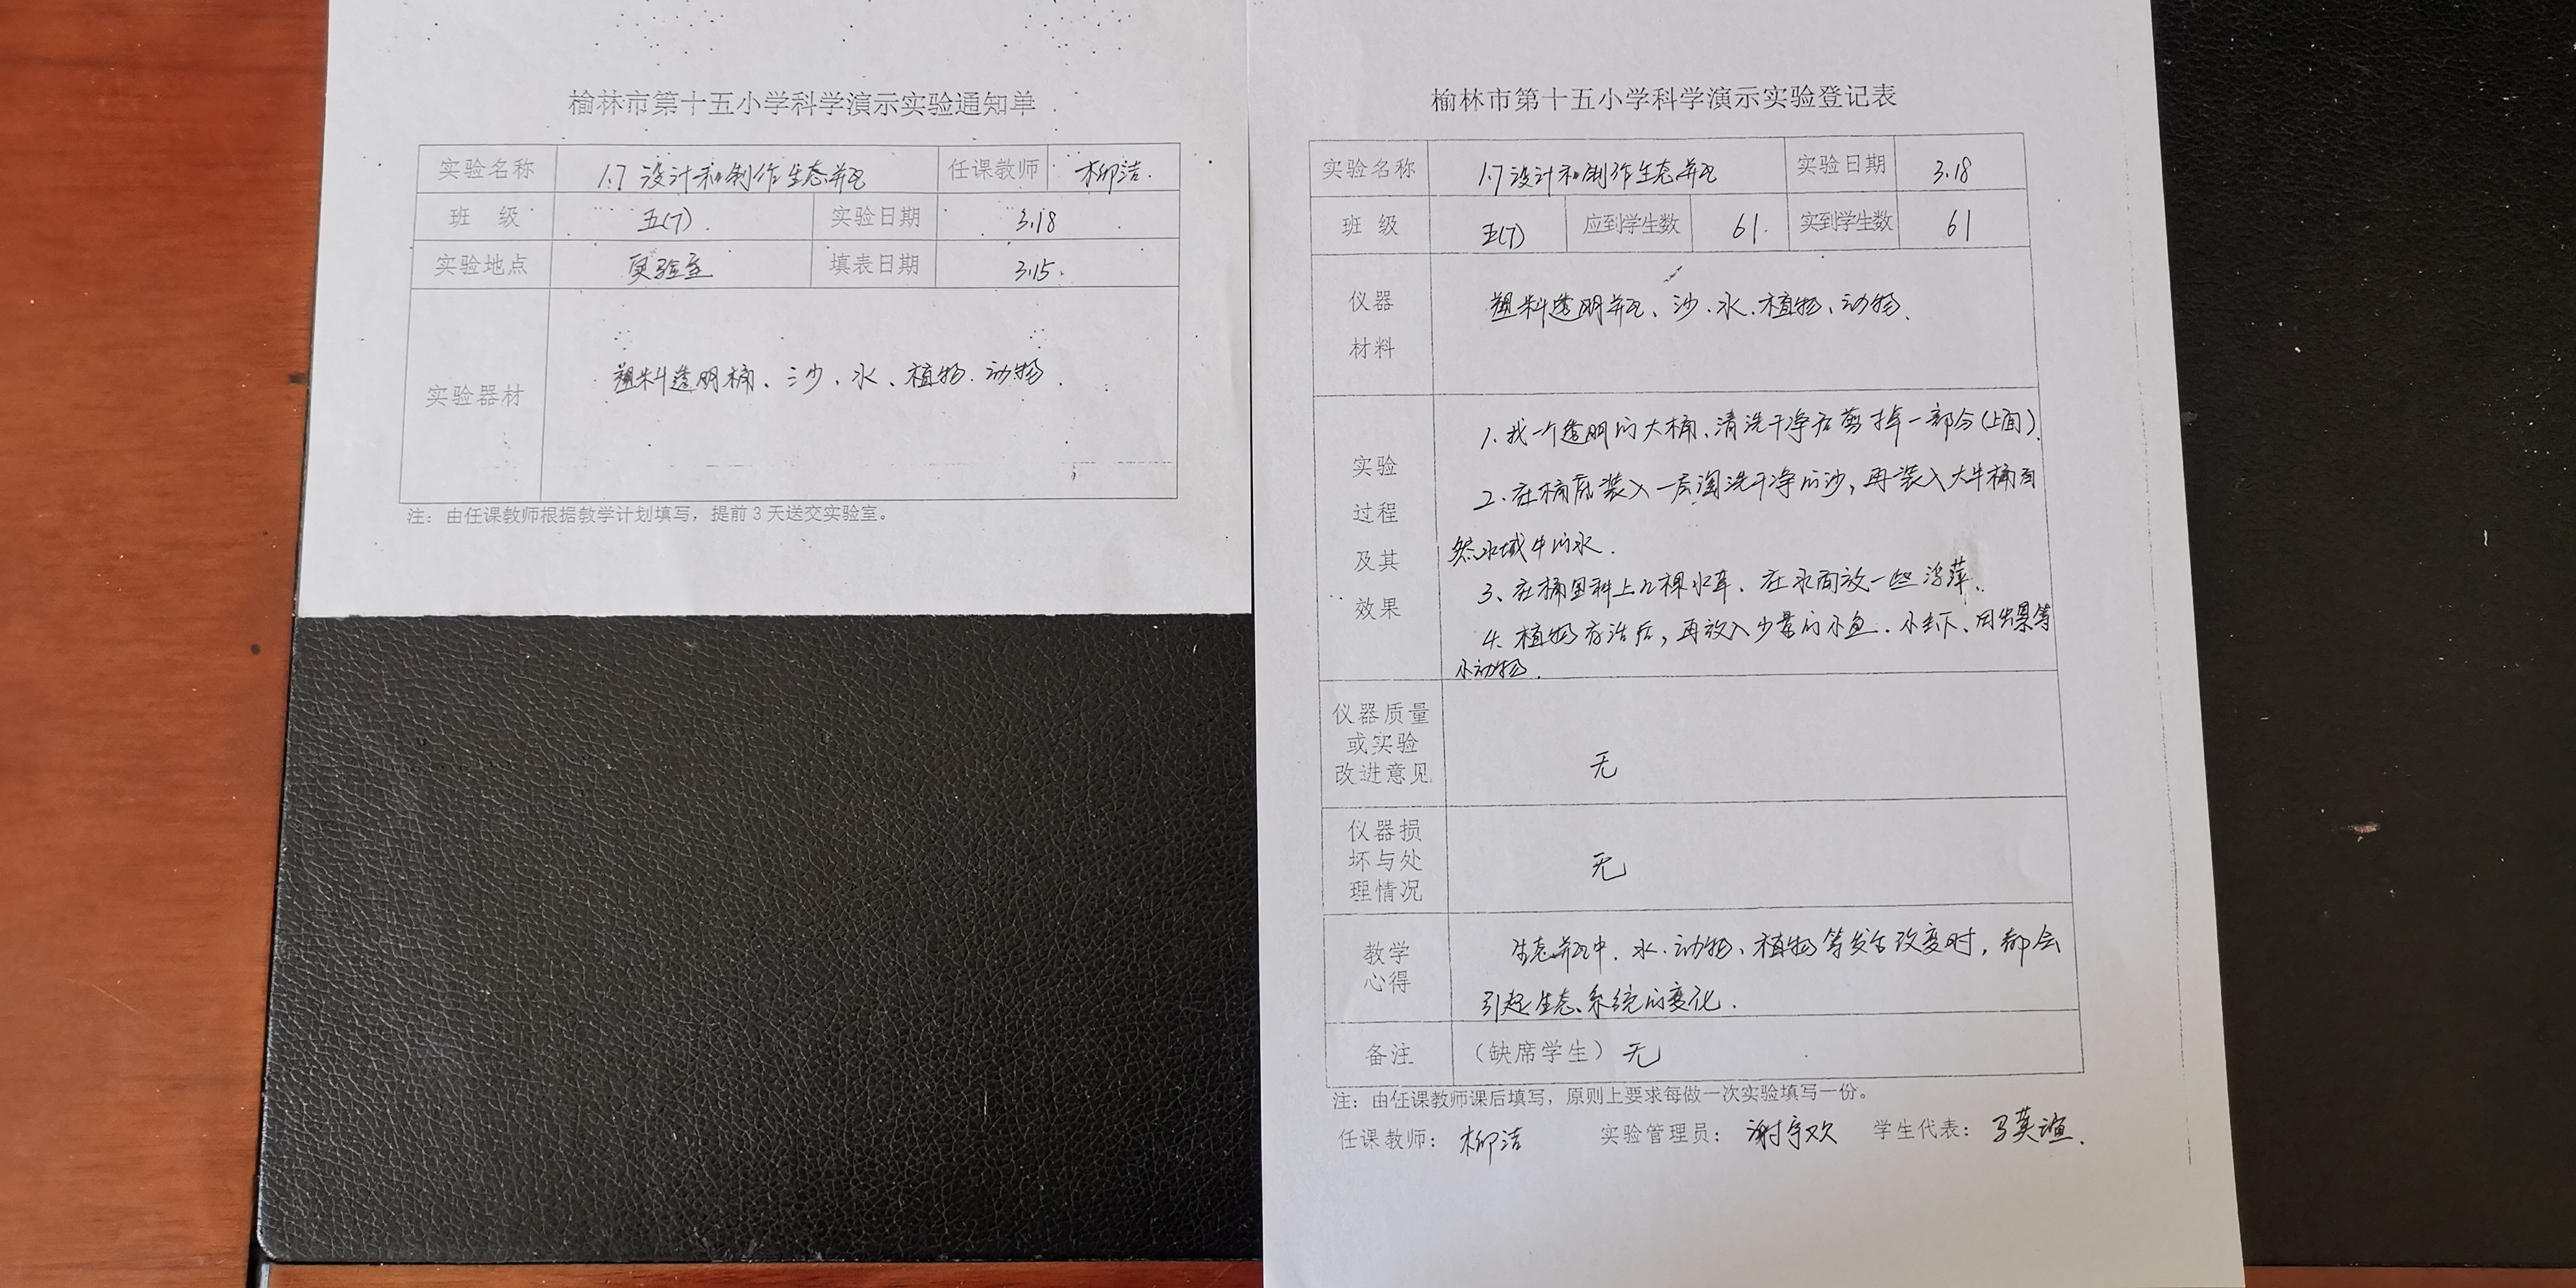 榆林市第十五小学科学演示实验通知单
实验名称 1.7 设计和制作生态瓶 任课教师 柳洁.
班 级 五(7). 实验日期 3.18
实验地点 实验室 填表日期 3.15.
实验器材 塑料透明桶、沙、水、植物、动物.
注：由任课教师根据教学计划填写，提前3天送交实验室。
榆林市第十五小学科学演示实验登记表
实验名称 1.7 设计和制作生态瓶 实验日期 3.18
班 级 五(7) 应到学生数 61. 实到学生数 61
仪器
材料
塑料透明瓶、沙、水、植物、动物.
实验
过程
及其
效果
1. 找一个透明的大桶、清洗干净后剪掉一部分(上面).
2. 在桶底装入一层淘洗干净的沙，再装入大半桶自
然水域中的水.
3、在桶里种上几棵水草、在水面放一些浮萍、
4. 植物存活后，再放入少量的小鱼、小虾、田螺等
小动物.
仪器质量
或实验
改进意见
无
仪器损
坏与处
理情况
无
教学
心得
生态瓶中、水、动物、植物等发生改变时，都会
引起生态系统的变化.
备注 （缺席学生）无
注：由任课教师课后填写，原则上要求每做一次实验填写一份。
任课教师：柳洁 实验管理员：谢宇欢 学生代表：马英